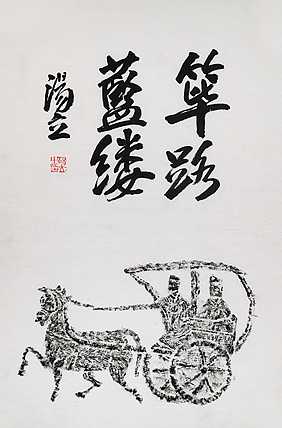 篳路
藍縷
湯立